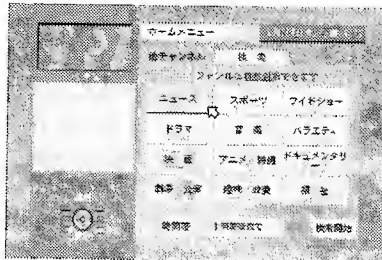 ホームメニュー
全チャンネル 検索
ジャンルは複数選択できます
ニュース スポーツ ワイドショー
ドラマ 音楽 バラエティ
映画 アニメ・特撮 ドキュメンタリ
趣味・教育 福祉
時間帯 検索開始